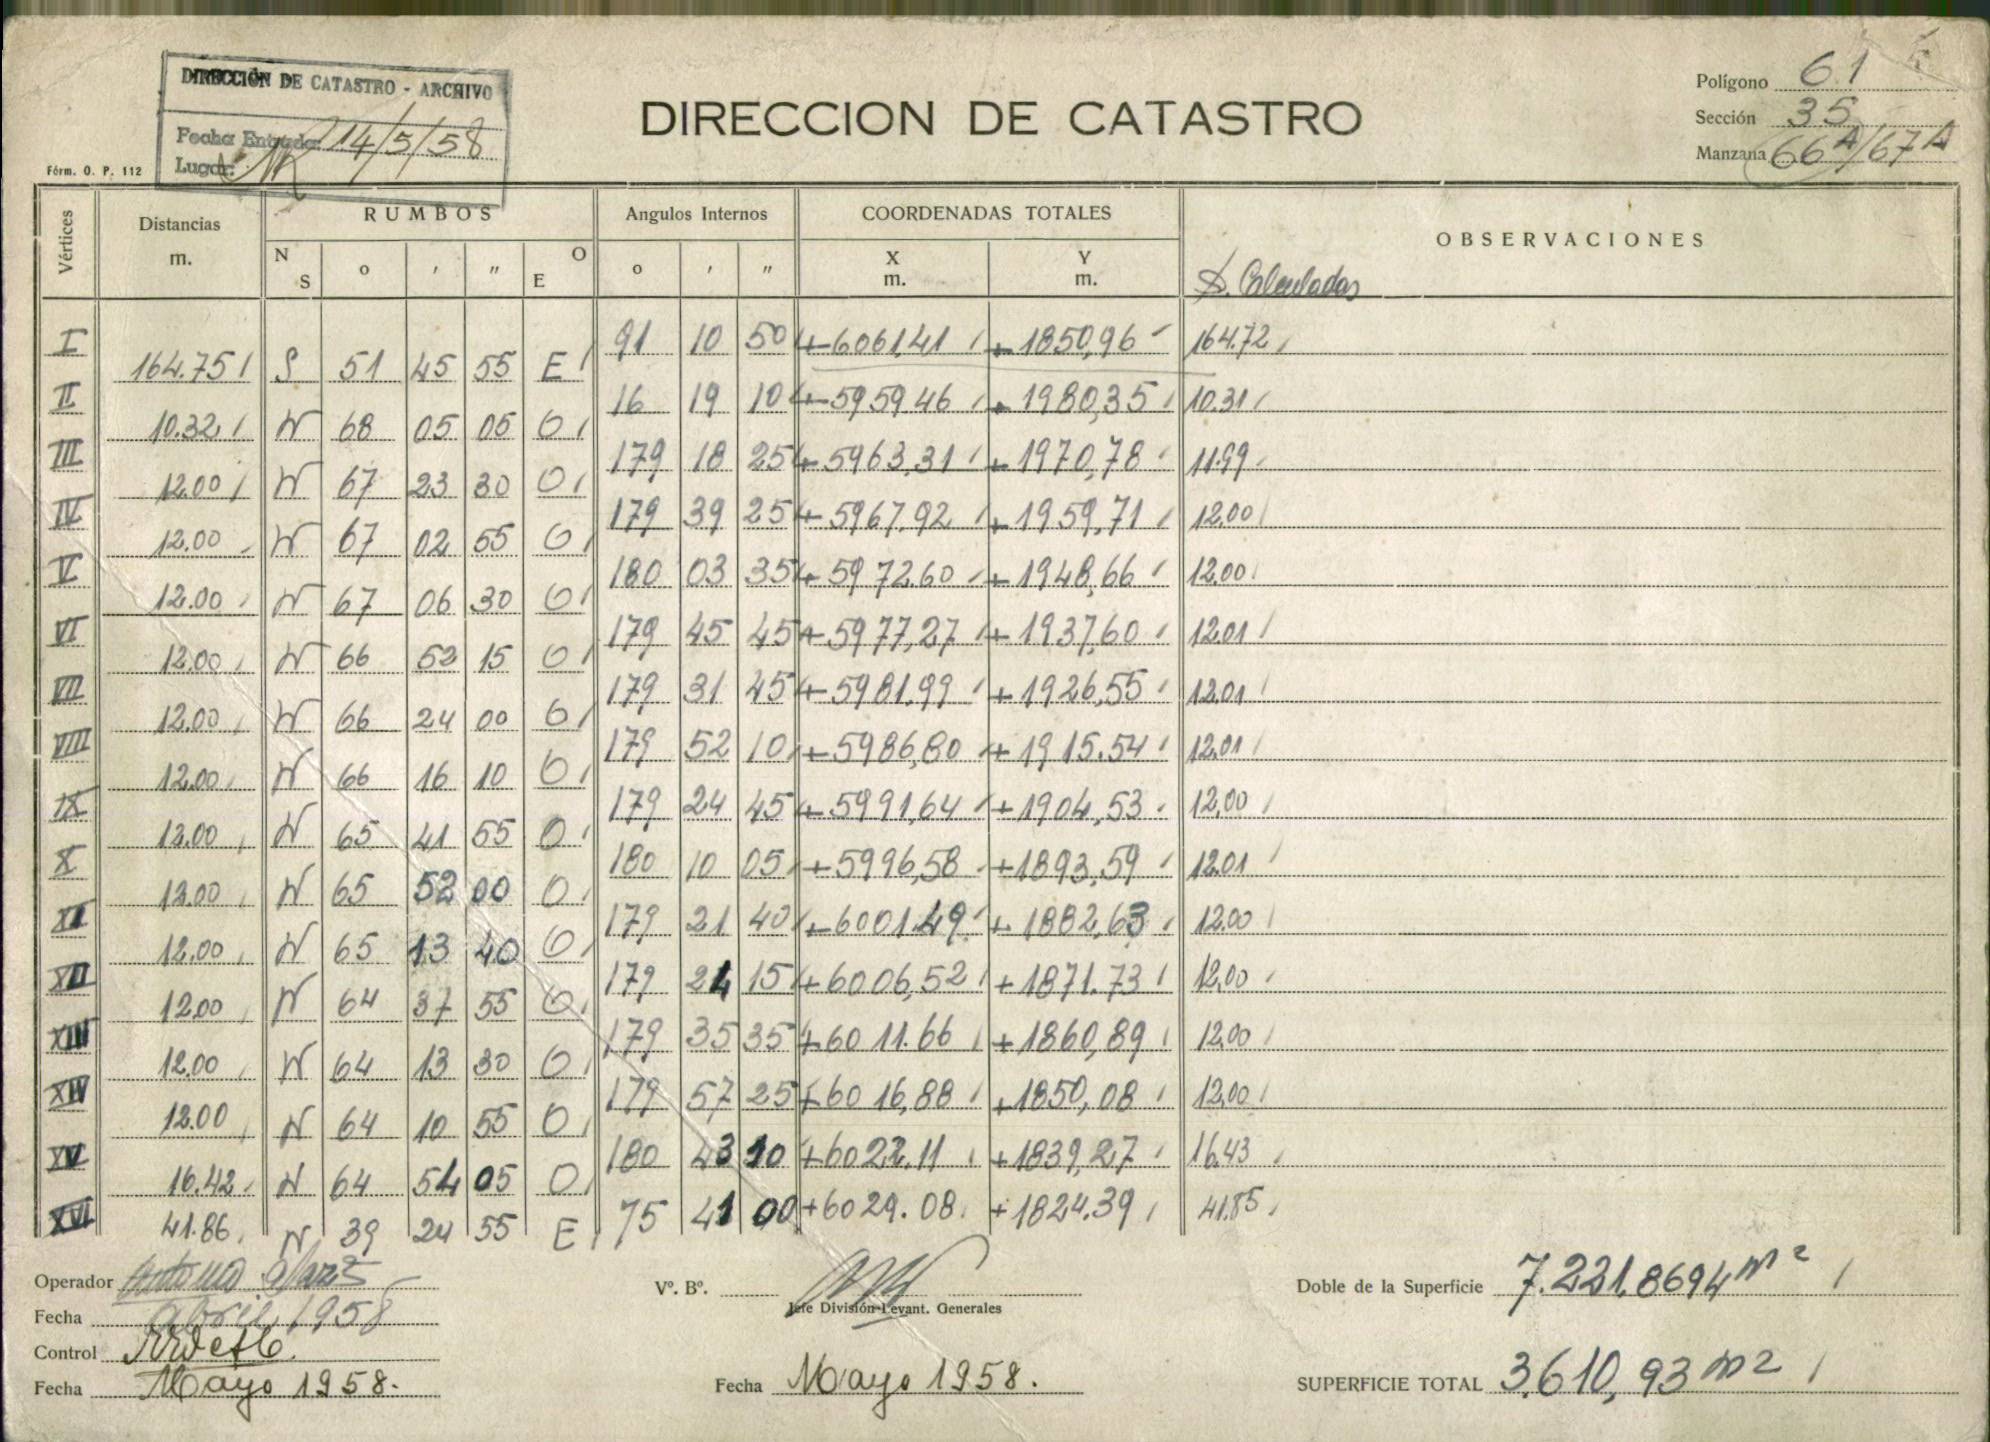 DIRECCIÓN DE CATASTRO - ARCHIVO
Fecha Entrada: 14/5/58
Lugar:
Fórm. O. P. 112
DIRECCION DE CATASTRO
Polígono 61
Sección 35
Manzana 66A/67A
Vértices Distancias m. RUMBOS Angulos Internos COORDENADAS TOTALES OBSERVACIONES
N S ° ' " O E ° ' " X m. Y m. D. Calculadas
I 91 10 50 +6061,41 +1850,96 164.72
164.75 S 51 45 55 E
II 16 19 10 +5959.46 +1980,35 10.31
10.32 N 68 05 05 O
III 179 18 25 +5963,31 +1970,78 11.99
12.00 N 67 23 30 O
IV 179 39 25 +5967.92 +1959,71 12.00
12.00 N 67 02 55 O
V 180 03 35 +5972.60 +1948,66 12.00
12.00 N 67 06 30 O
VI 179 45 45 +5977,27 +1937,60 12.01
12.00 N 66 52 15 O
VII 179 31 45 +5981,99 +1926,55 12.01
12.00 N 66 24 00 O
VIII 179 52 10 +5986,80 +1915.54 12.01
12.00 N 66 16 10 O
IX 179 24 45 +5991,64 +1904,53 12,00
12.00 N 65 41 55 O
X 180 10 05 +5996,58 +1893,59 12.01
12.00 N 65 52 00 O
XI 179 21 40 +6001.49 +1882,63 12.00
12.00 N 65 13 40 O
XII 179 24 15 +6006,52 +1871.73 12,00
12.00 N 64 37 55 O
XIII 179 35 35 +6011.66 +1860,89 12,00
12.00 N 64 13 30 O
XIV 179 57 25 +6016,88 +1850,08 12,00
12.00 N 64 10 55 O
XV 180 43 10 +6022.11 +1839,27 16.43
16.42 N 64 54 05 O
XVI 75 41 00 +6029.08 +1824.39 41.85
41.86 N 39 24 55 E
Operador Antonio
Fecha Abril 1958
Control
Fecha Mayo 1958.
Vº. Bº.
Jefe División Levant. Generales
Fecha Mayo 1958.
Doble de la Superficie 7.221.8694 m²
SUPERFICIE TOTAL 3.610,93 m2